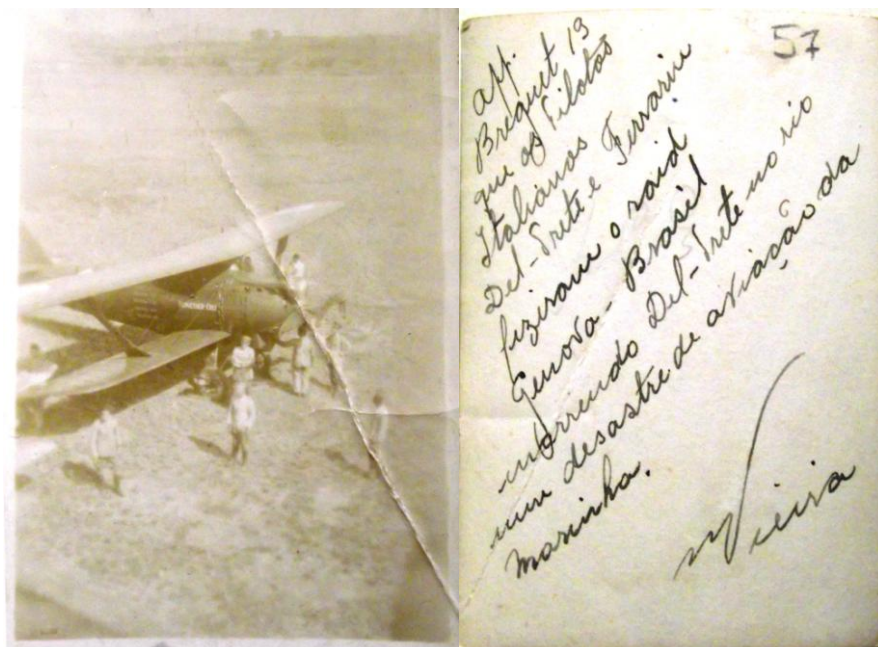 57
app.
Breguet 19
que os Pilotos
Italianos
Del-Prete e Ferrarin
fizeram o raid
Genova - Brasil
morrendo Del-Prete no rio
num desastre de aviação da
marinha.
Vieira